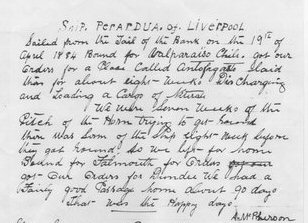 Ship. PERARDUA. of. LIVERPOOL
Sailed from the Tail of the Bank on the 19th of
April 1884 Bound for Valparaiso Chili. got our
Orders for a place Called Antofagasta laid
thair for about eight weeks Discharging
and Loading a Cargo of
We were eleven weeks of the
Pitch of the Horn trying to get round
thair was som of the Ships eight week before
they got round. As we left for home
Bound for Falmouth for Orders
got Our Orders for Dundee We had a
Fairly good Passage home about 90 days
That was the Happy days
A McPherson